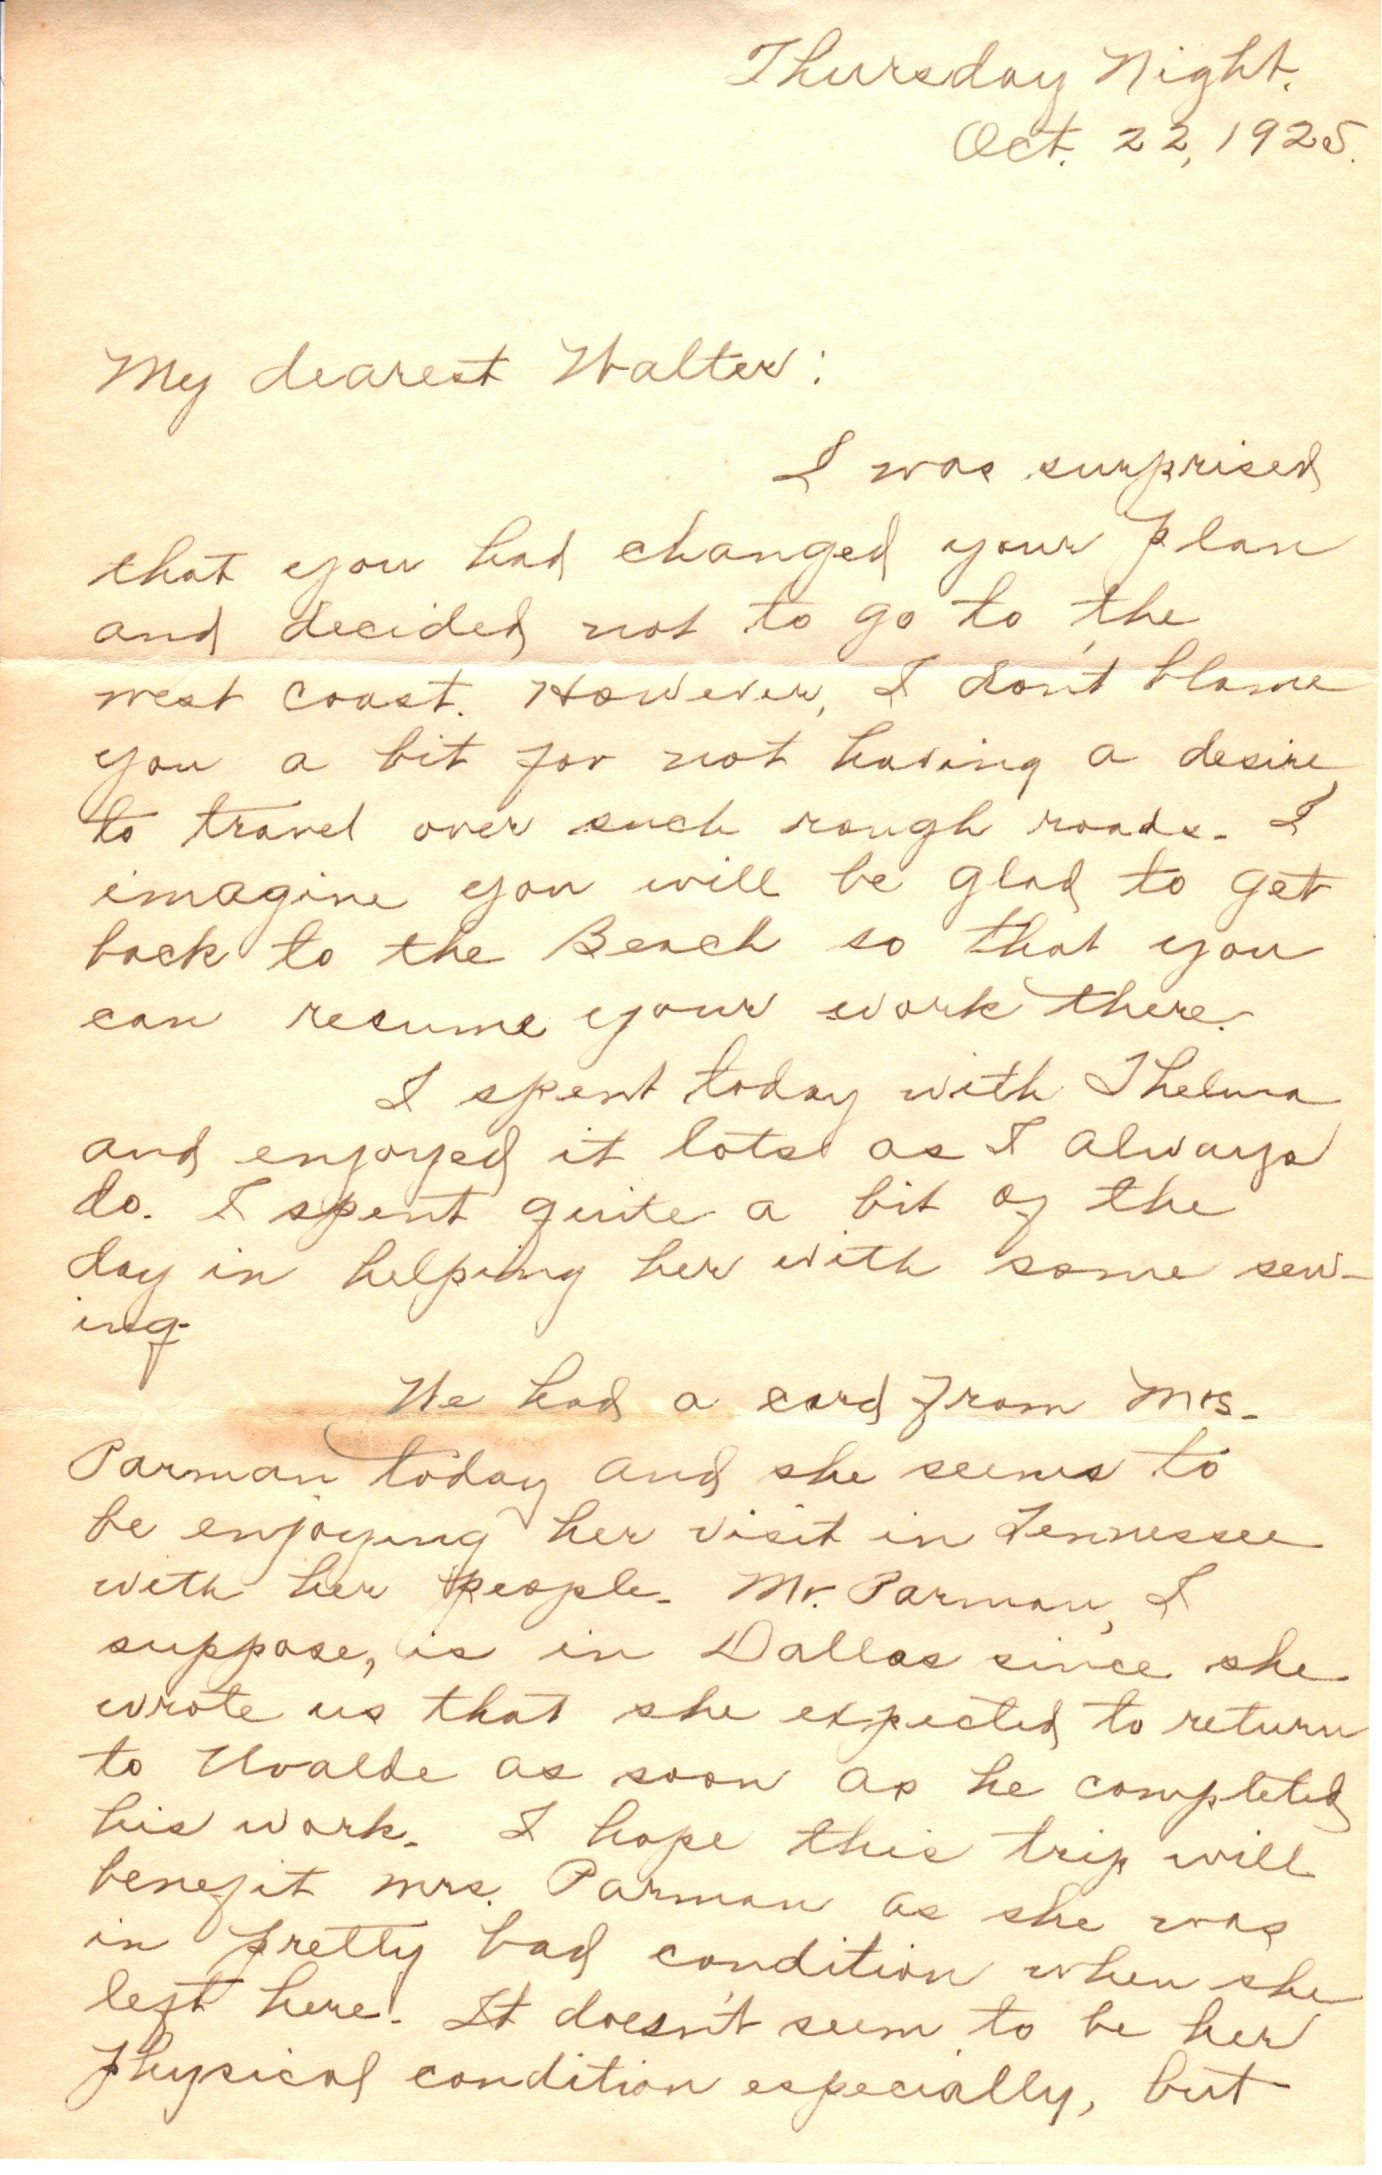 Thursday Night.
Oct. 22, 1925.
My dearest Walter:
I was surprised
that you had changed your plan
and decided not to go to the
west coast. However, I don't blame
you a bit for not having a desire
to travel over such rough roads. I
imagine you will be glad to get
back to the Beach so that you
can resume your work there.
I spent today with Thelma
and enjoyed it lots as I always
do. I spent quite a bit of the
day in helping her with some sew-
ing.
We had a card from Mrs.
Parman today and she seems to
be enjoying her visit in Tennessee
with her people. Mr. Parman, I
suppose, is in Dallas since she
wrote us that she expected to return
to Uvalde as soon as he completed
his work. I hope this trip will
benefit Mrs. Parman as she was
in pretty bad condition when she
left here. It doesn't seem to be her
physical condition especially, but